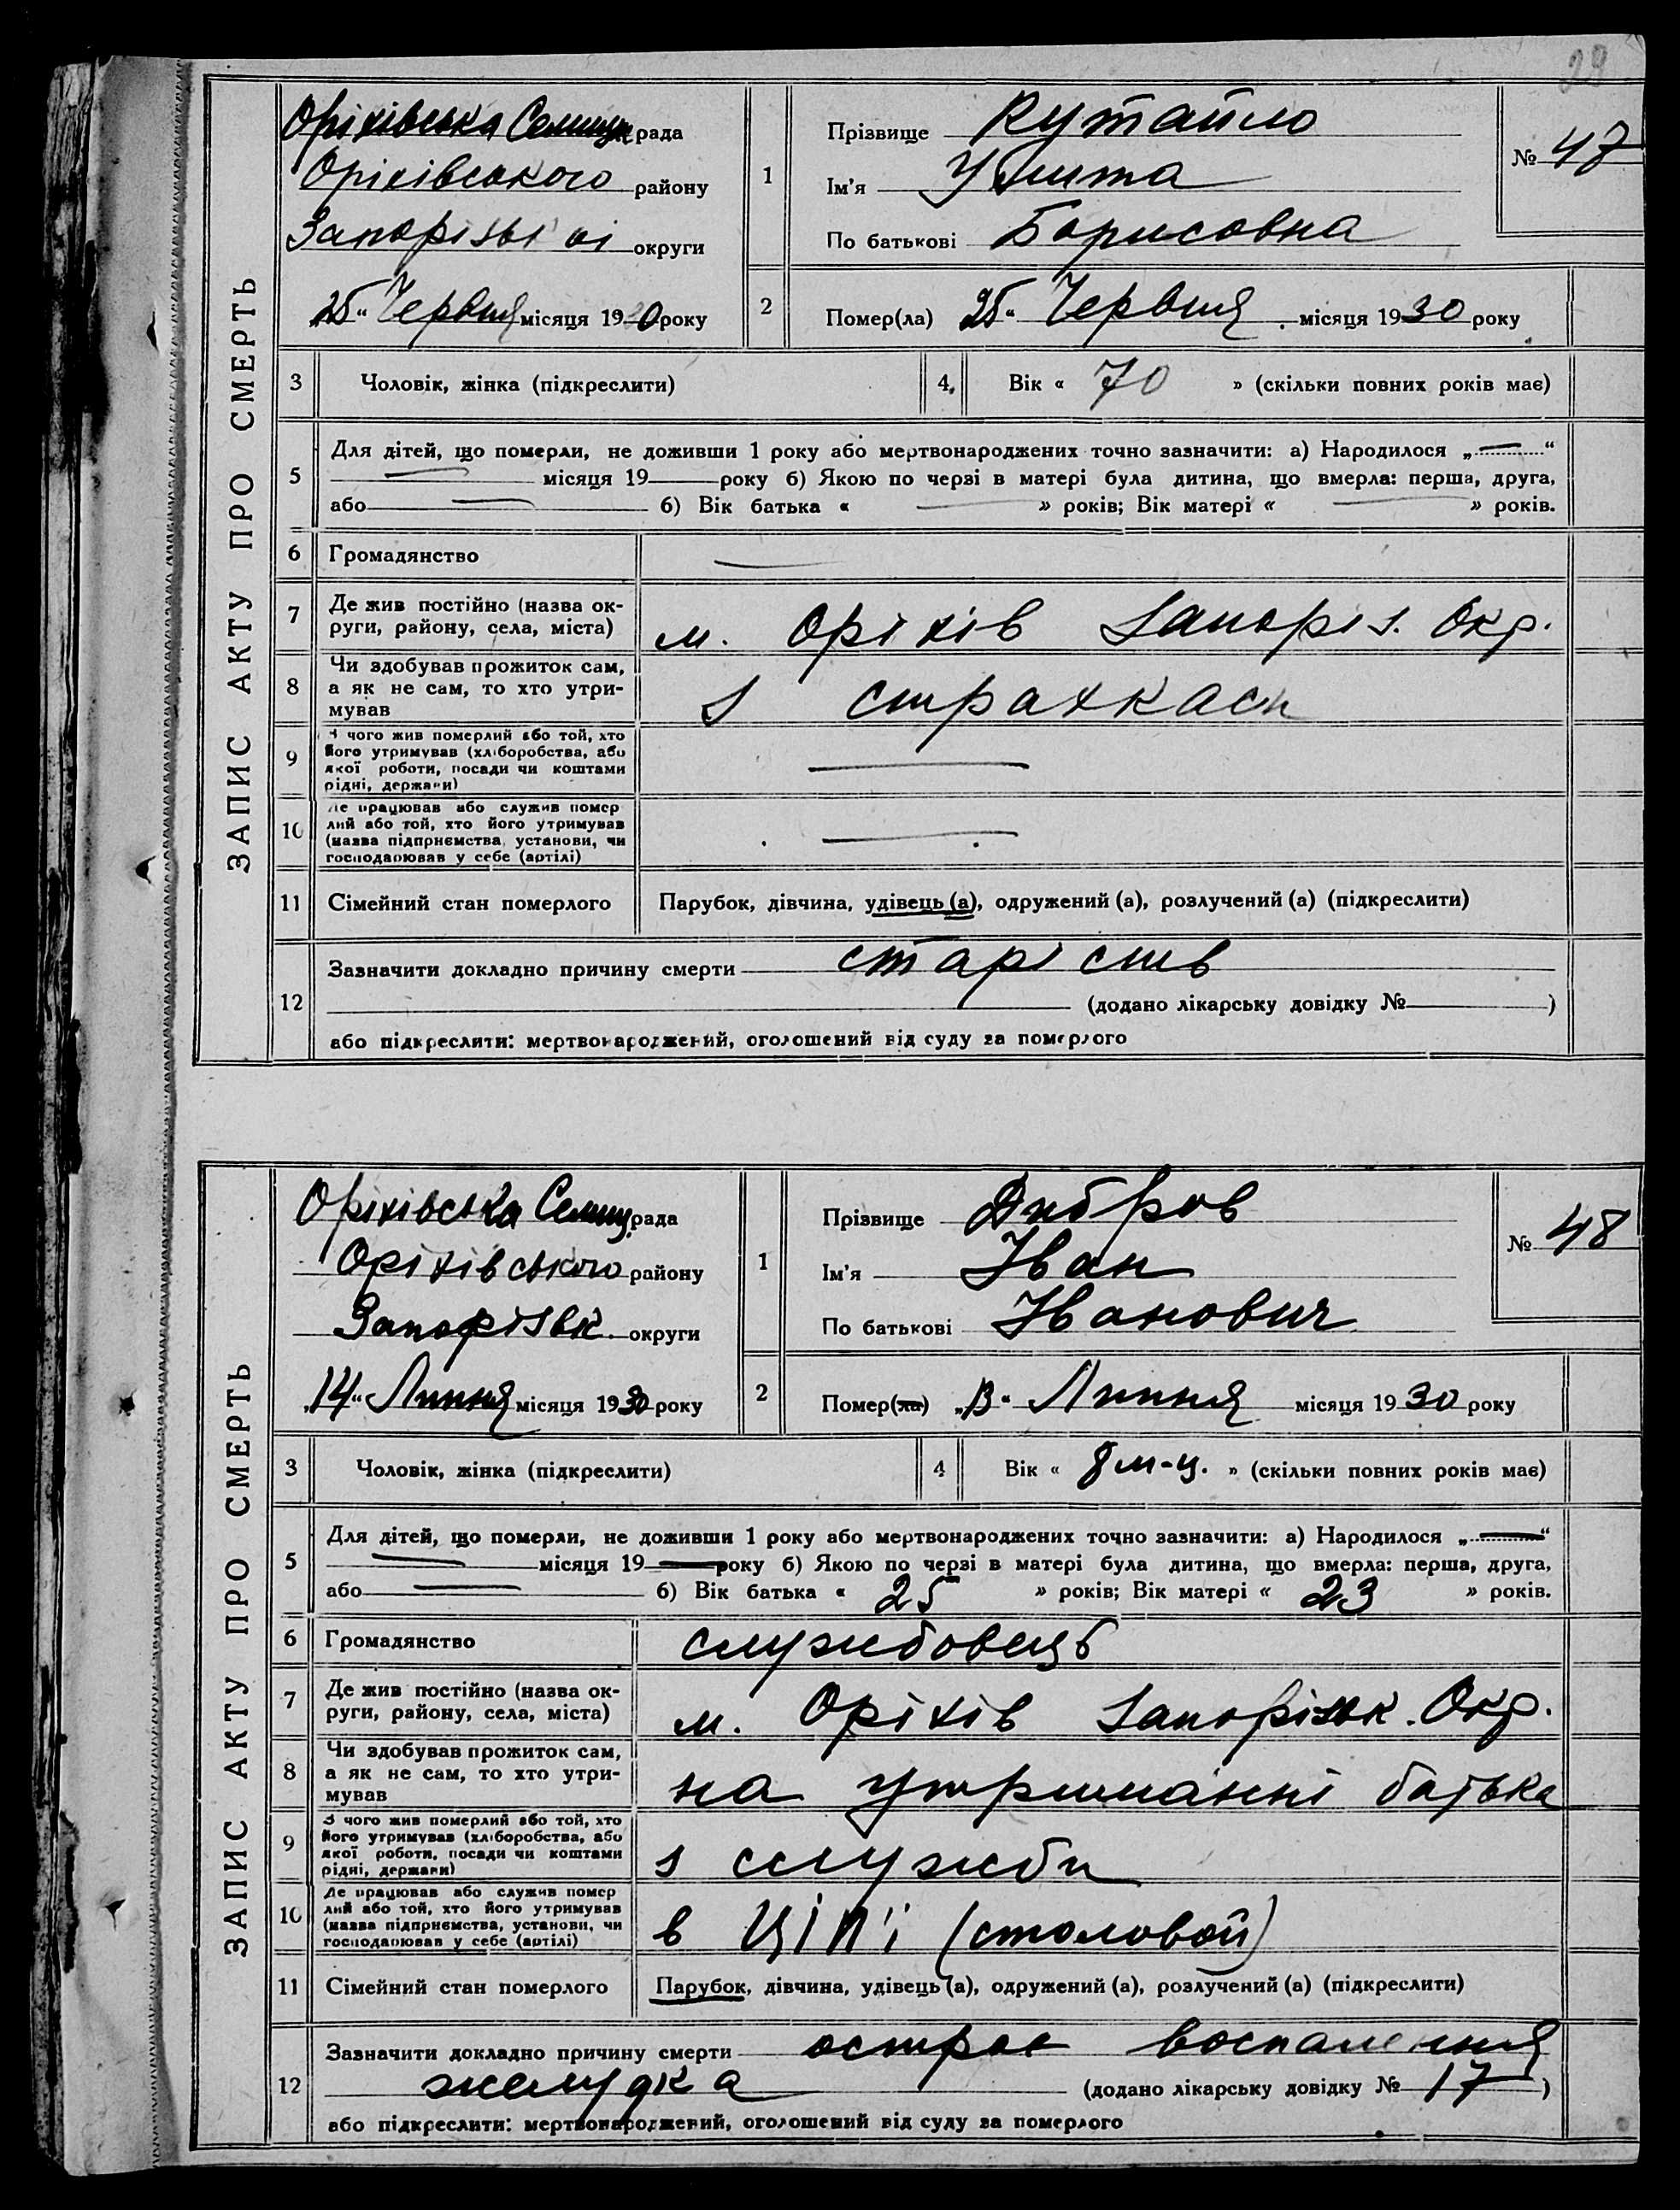 29
ЗАПИС АКТУ ПРО СМЕРТЬ
Оріхівська Селищн рада
Оріхівського району
Запорізької округи
„25“ Червня місяця 1930 року
1
Прізвище Кутайло
Ім'я
По батькові Борисовна
№ 47
2
Помер(ла) „25“ Червня місяця 1930 року
3 Чоловік, жінка (підкреслити)
4. Вік « 70 » (скільки повних років має)
5
Для дітей, що померли, не доживши 1 року або мертвонароджених точно зазначити: а) Народилося „—“
— місяця 19 року б) Якою по черзі в матері була дитина, що вмерла: перша, друга,
або — б) Вік батька « — » років; Вік матері « — » років.
6 Громадянство —
7 Де жив постійно (назва ок-
руги, району, села, міста) м. Оріхів Запоріз. Окр.
8 Чи здобував прожиток сам,
а як не сам, то хто утри-
мував з страхкаси
9 З чого жив померлий або той, хто
його утримував (хліборобства, або
якої роботи, посади чи коштами
рідні, держави) —
10 Де працював або служив помер
лий або той, хто його утримував
(назва підприємства, установи, чи
господарював у себе (артілі) —
11 Сімейний стан померлого Парубок, дівчина, удівець (а), одружений (а), розлучений (а) (підкреслити)
12
Зазначити докладно причину смерти старість
(додано лікарську довідку № )
або підкреслити: мертвонароджений, оголошений від суду за померлого
ЗАПИС АКТУ ПРО СМЕРТЬ
Оріхівська Селищ. рада
Оріхівського району
Запорізьк. округи
„14“ Липня місяця 1930 року
1
Прізвище Дибров
Ім'я Іван
По батькові Іванович
№ 48
2
Помер(ла) „13“ Липня місяця 1930 року
3 Чоловік, жінка (підкреслити)
4 Вік « 8 м-ц. » (скільки повних років має)
5
Для дітей, що померли, не доживши 1 року або мертвонароджених точно зазначити: а) Народилося „—“
— місяця 19— року б) Якою по черзі в матері була дитина, що вмерла: перша, друга,
або — б) Вік батька « 25 » років; Вік матері « 23 » років.
6 Громадянство службовець
7 Де жив постійно (назва ок-
руги, району, села, міста) м. Оріхів Запорізьк. Окр.
8 Чи здобував прожиток сам,
а як не сам, то хто утри-
мував на утриманні батька
9 З чого жив померлий або той, хто
його утримував (хліборобства, або
якої роботи, посади чи коштами
рідні, держави) з служби
10 Де працював або служив помер
лий або той, хто його утримував
(назва підприємства, установи, чи
господарював у себе (артілі) в (столовой)
11 Сімейний стан померлого Парубок, дівчина, удівець (а), одружений (а), розлучений (а) (підкреслити)
12
Зазначити докладно причину смерти острое воспаления
желудка (додано лікарську довідку № 17 )
або підкреслити: мертвонароджений, оголошений від суду за померлого